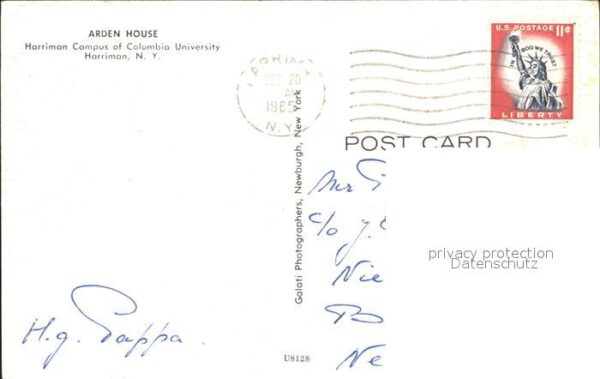 ARDEN HOUSE
Harriman Campus of Columbia University
Harriman, N. Y.
SEP 20
1965
N.Y.
U.S. POSTAGE 11¢
IN GOD WE TRUST
LIBERTY
POST CARD
Galati Photographers, Newburgh, New York
Mr
c/o
Nie
B
Ne
privacy protection
Datenschutz
H.g. Pappa.
U8128